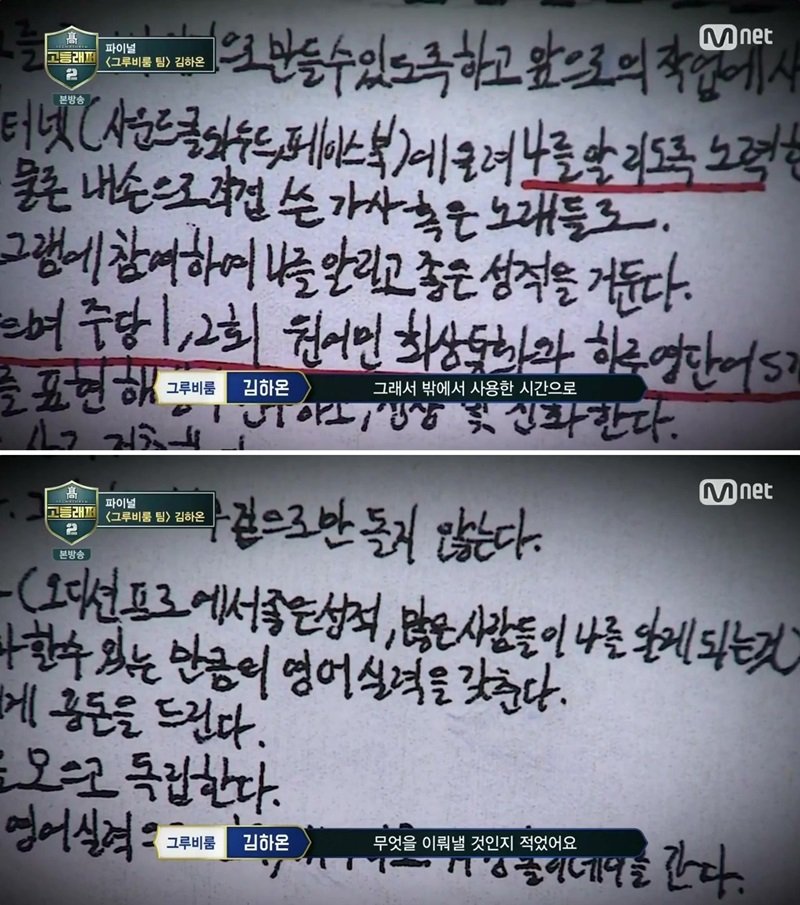 高
고등래퍼
2
본방송
파이널
<그루비룸 팀> 김하온
Mnet
으로 만들수 있도록 하고 앞으로의 작업에
터넷(사운드클라우드, 페이스북)에 올려 나를 알리도록 노력
물론 내손으로 직접 쓴 가사 혹은 노래들로.
그램에 참여하여 나를 알리고 좋은 성적을 거둔다.
으며 주당 1, 2회 원어민 화상통화와 하루 영단어 5
를 표현
한다.
그루비룸 김하온 그래서 밖에서 사용한 시간으로
高
고등래퍼
2
본방송
파이널
<그루비룸 팀> 김하온
Mnet
겉으로만 돌지 않는다.
(오디션프로에서 좋은성적, 많은 사람들이 나를 알게 되는것)
할수 있는 만큼의 영어실력을 갖춘다.
게 용돈을 드린다.
모으고 독립한다.
영어실력
간다.
그루비룸 김하온 무엇을 이뤄낼 것인지 적었어요